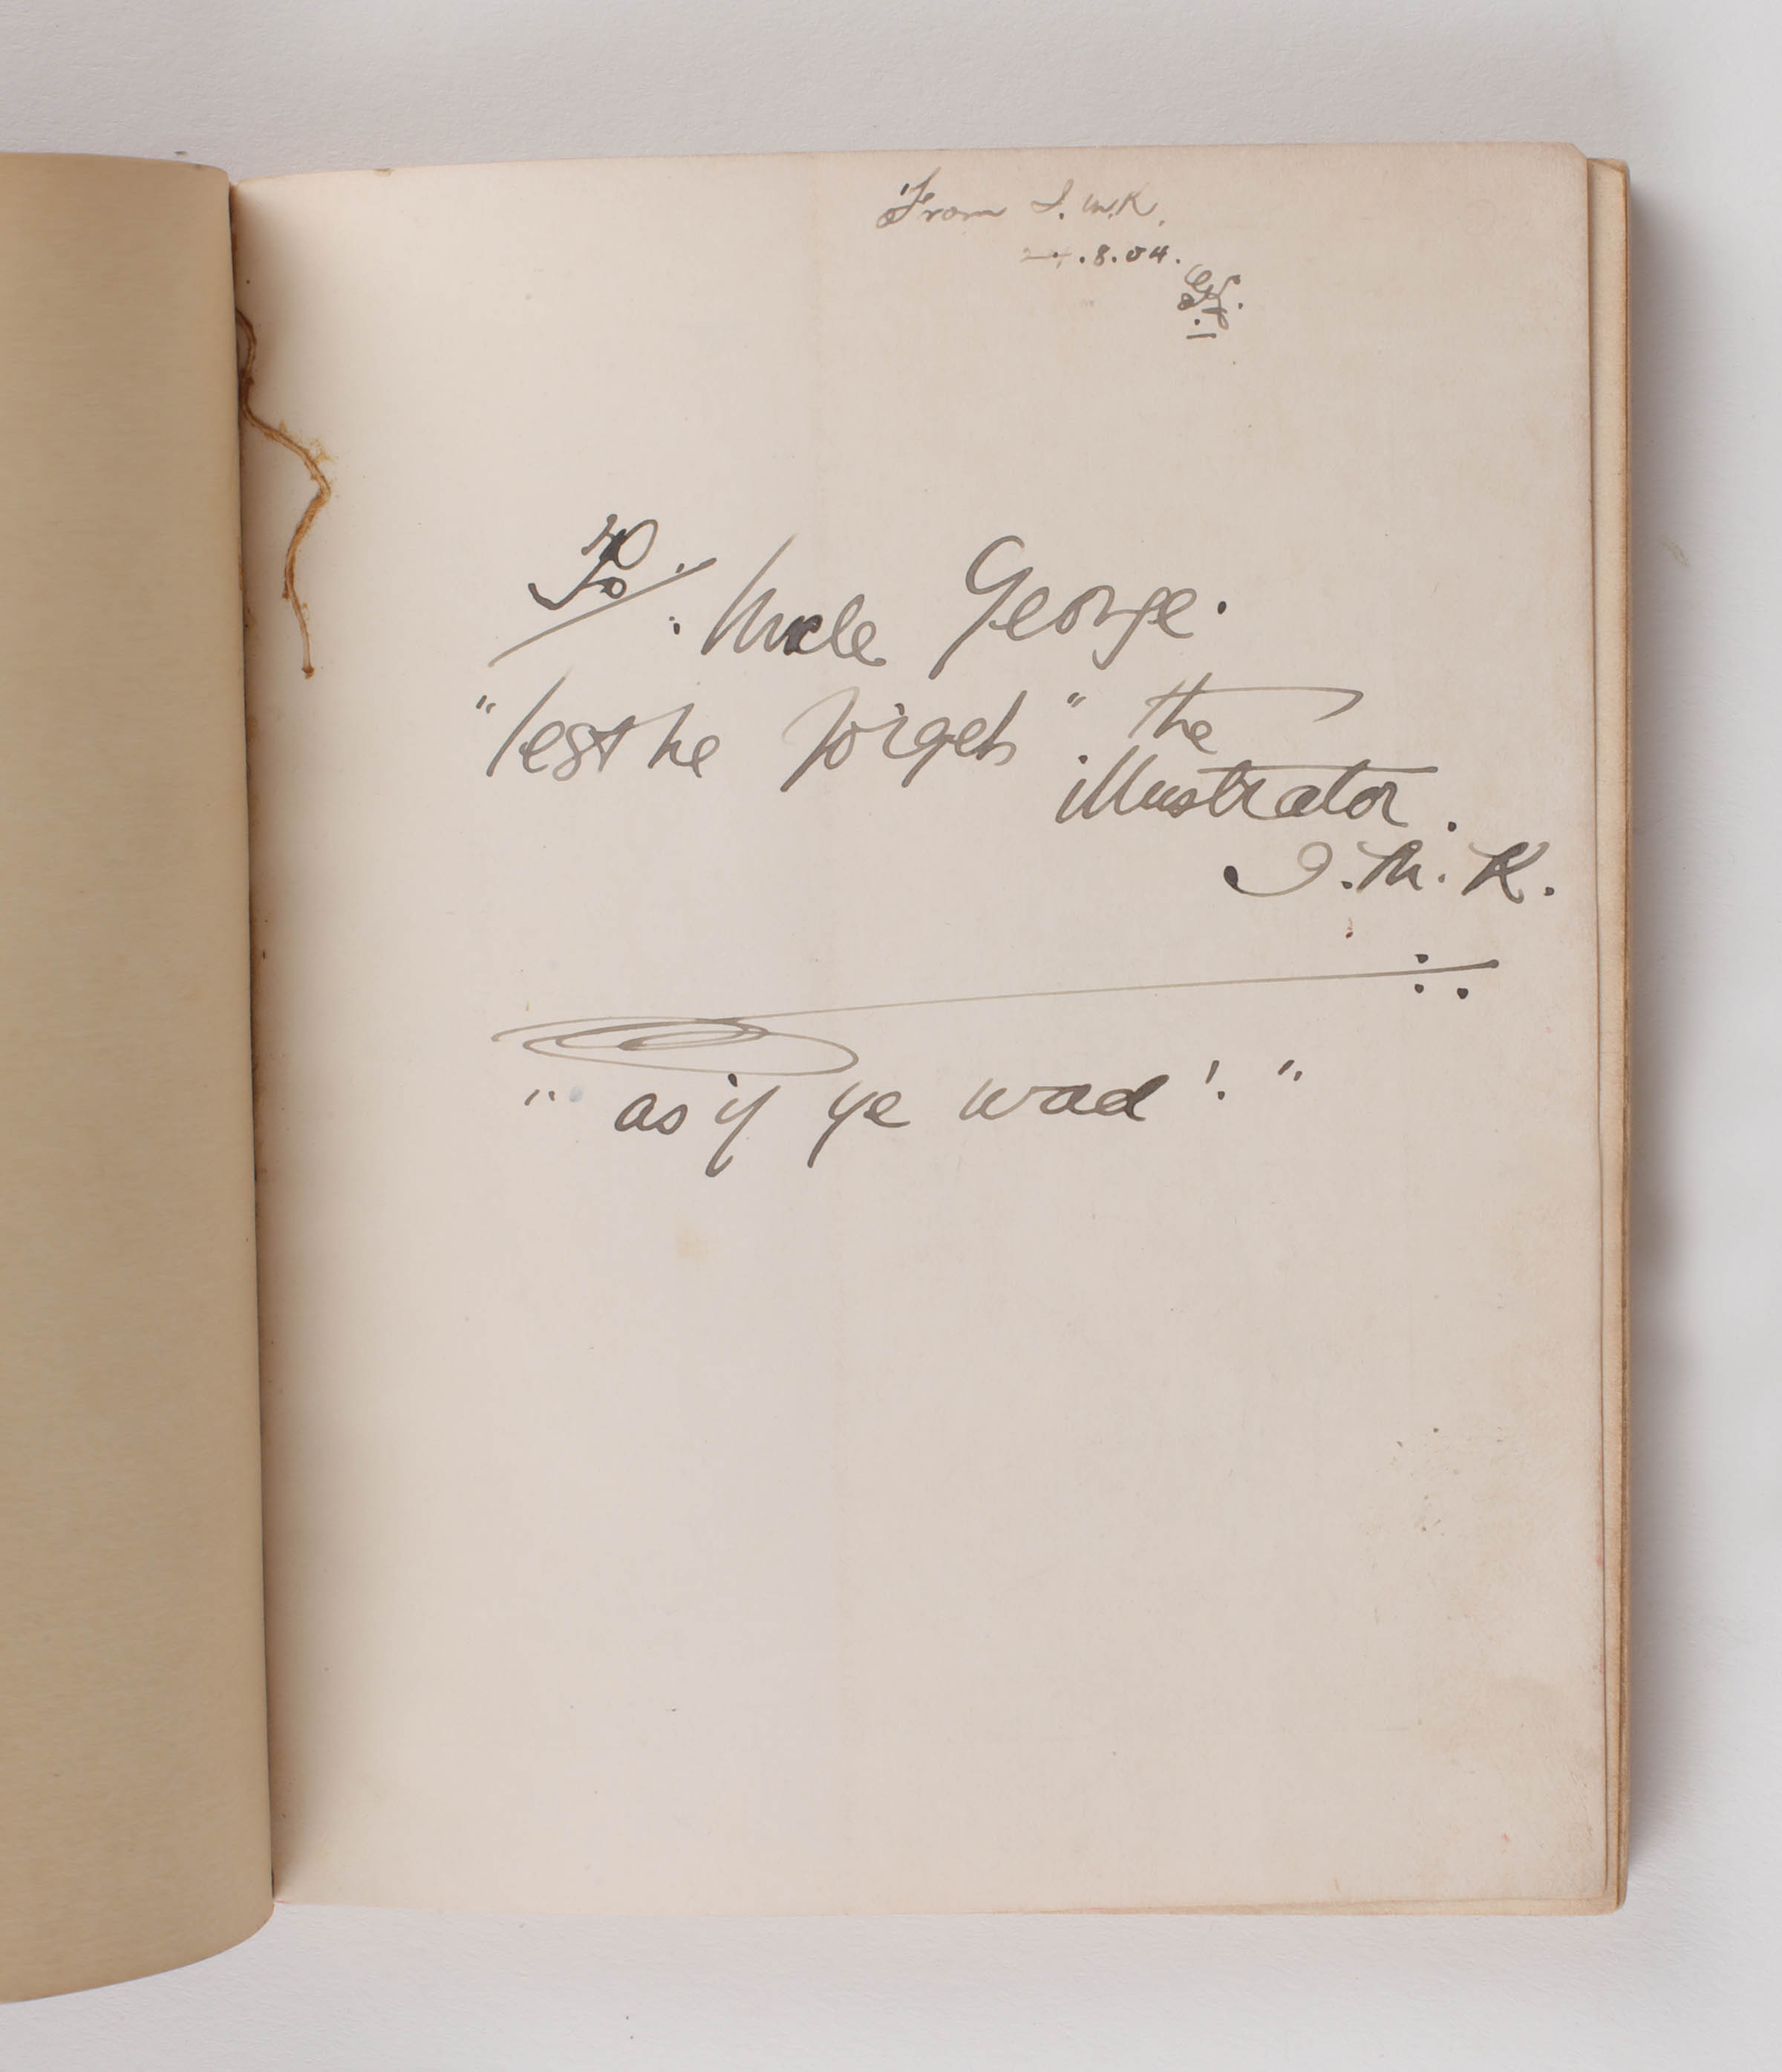 From J. W. K.
.8.04.
To. Uncle George.
"lest he forget" the
illustrator.
J. M. K.
"as if ye wad!"